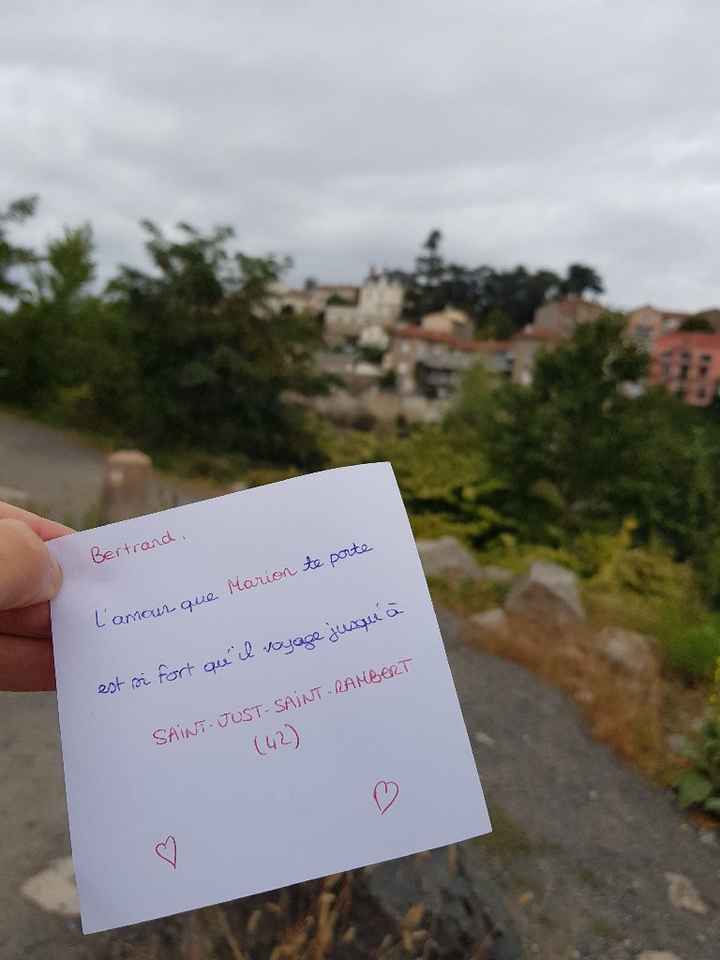 Bertrand,
L'amour que Marion te porte
est si fort qu'il voyage jusqu'à
SAINT-JUST-SAINT-RAMBERT
(42)